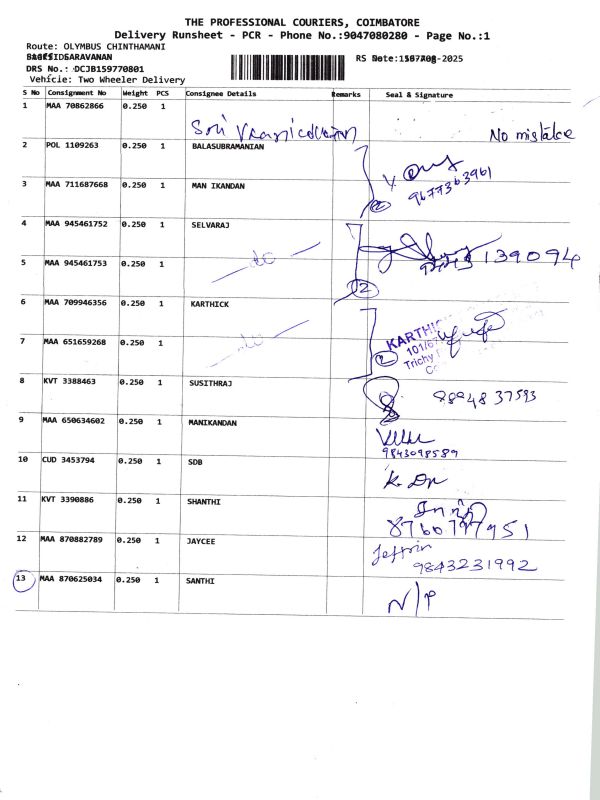 THE PROFESSIONAL COURIERS, COIMBATORE
Delivery Runsheet - PCR - Phone No.:9047080280 - Page No.:1
Route: OLYMBUS CHINTHAMANI
SARAVANAN
DRS No.: DCJB159770801
Vehicle: Two Wheeler Delivery
S No Consignment No Weight PCS Consignee Details Remarks Seal & Signature
1 MAA 70862866 0.250 1 No mistake
2 POL 1109263 0.250 1 BALASUBRAMANIAN
3 MAA 711687668 0.250 1 MAN IKANDAN 2 9677363961
4 MAA 945461752 0.250 1 SELVARAJ
139094
5 MAA 945461753 0.250 1 do 2
6 MAA 709946356 0.250 1 KARTHICK
KARTHIC
101/6
7 MAA 651659268 0.250 1 do Trichy
8 KVT 3388463 0.250 1 SUSITHRAJ 9894837593
9 MAA 650634602 0.250 1 MANIKANDAN
9843098589
10 CUD 3453794 0.250 1 SDB
11 KVT 3390886 0.250 1 SHANTHI
8760777951
12 MAA 870882789 0.250 1 JAYCEE Jeffrin
9843231992
13 MAA 870625034 0.250 1 SANTHI
N/P